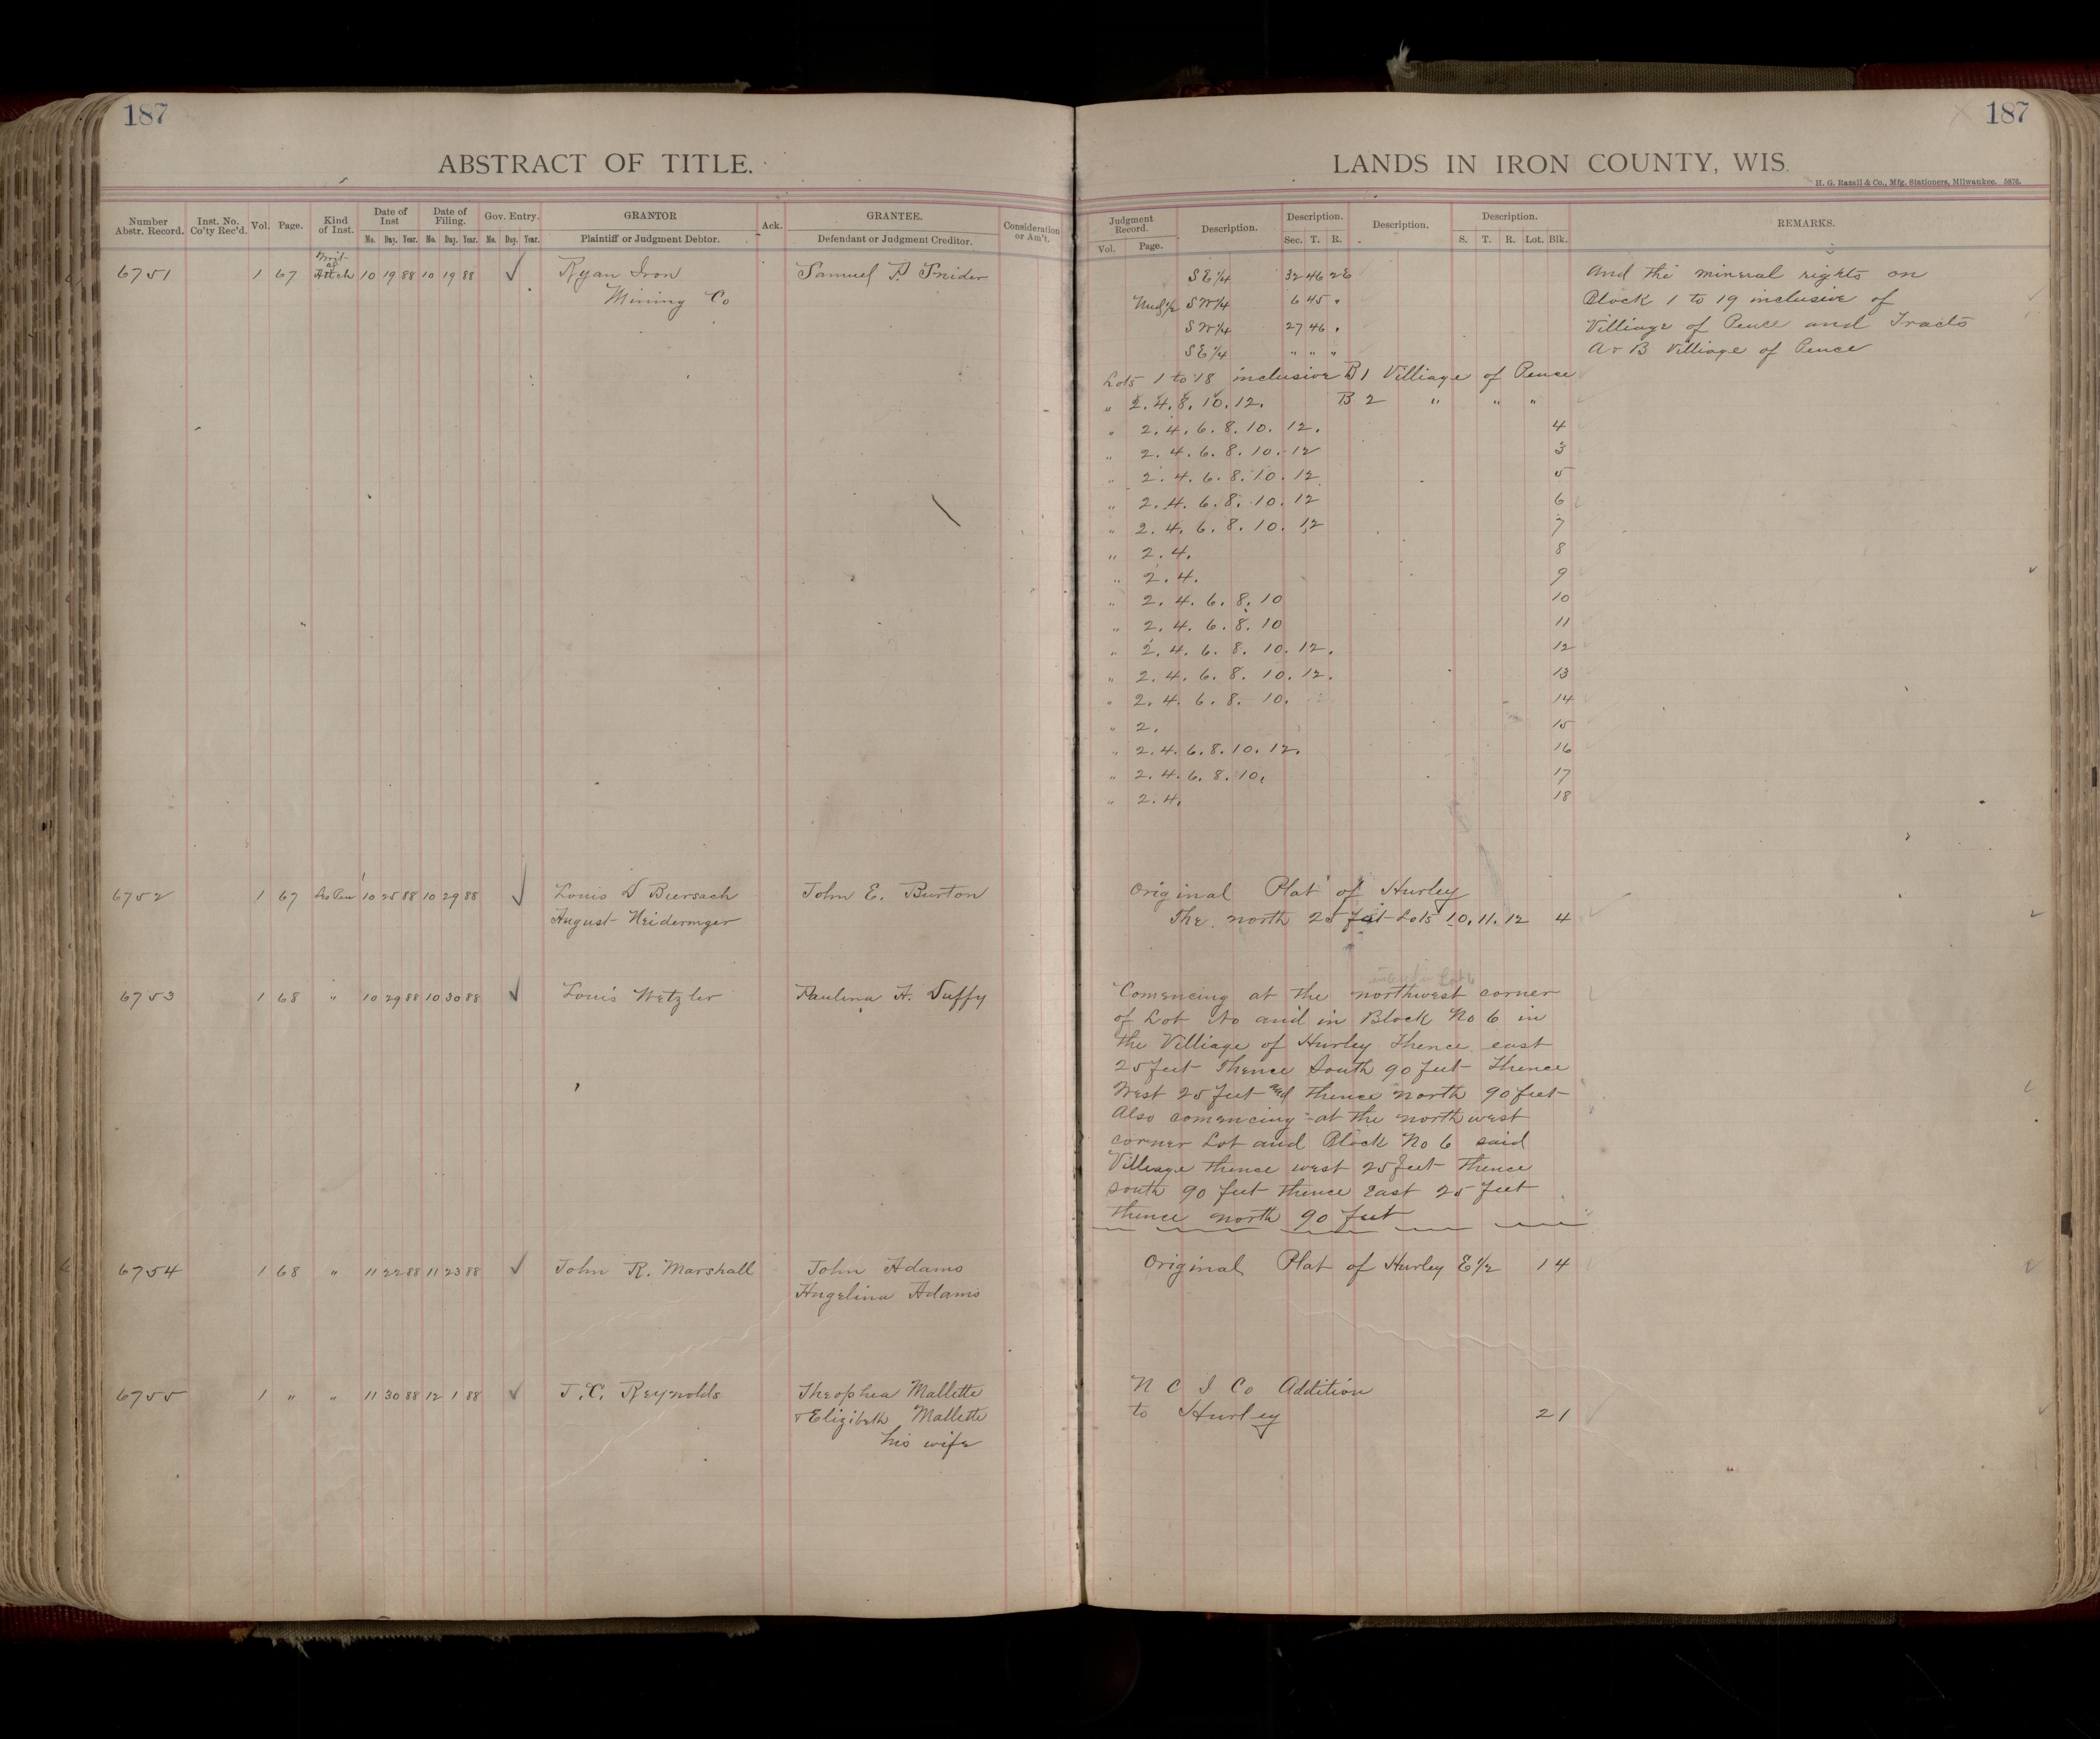 187
ABSTRACT OF TITLE.
Number Abstr. Record. Inst. No. Co'ty Rec'd. Vol. Page. Kind of Inst. Date of Inst Mo. Day. Year. Date of Filing. Mo. Day. Year. Gov. Entry. Mo. Day. Year. GRANTOR Plaintiff or Judgment Debtor. Ack. GRANTEE. Defendant or Judgment Creditor. Consideration or Am't.
6751 1 67 Writ of Attch 10 19 88 10 19 88 ✓ Ryan Iron Samuel P. Snider
Mining Co
6752 1 67 Lis Pen 10 25 88 10 29 88 ✓ Louis D Biersach John E. Burton
August
6753 1 68 " 10 29 88 10 30 88 ✓ Louis Wetzler Paulina A. Duffy
6754 1 68 " 11 22 88 11 23 88 ✓ John R. Marshall John Adams
Angelina Adams
6755 1 " " 11 30 88 12 1 88 ✓ J. C. Reynolds Theophea Mallette
& Elizibeth Mallette
his wife
187
LANDS IN IRON COUNTY, WIS.
H. G. Razall & Co., Mfg. Stationers, Milwaukee. 5876.
Judgment Record. Vol. Page. Description. Description. Sec. T. R. Description. Description. S. T. R. Lot. Blk. REMARKS.
SE 1/4 32 46 2E And the mineral rights on
Und 1/2 SW 1/4 6 45 " Block 1 to 19 inclusive of
SW 1/4 27 46 " Villiage of Pence and Tracts
SE 1/4 " " " A & B Villiage of Pence
Lots 1 to 18 inclusive B 1 Villiage of Pence
" 2. 4. 8. 10. 12. B 2 " " "
" 2. 4. 6. 8. 10. 12. 4
" 2. 4. 6. 8. 10. 12 3
" 2. 4. 6. 8. 10. 12 5
" 2. 4. 6. 8. 10. 12 6
" 2. 4. 6. 8. 10. 12 7
" 2. 4. 8
" 2. 4. 9
" 2. 4. 6. 8. 10 10
" 2. 4. 6. 8. 10 11
" 2. 4. 6. 8. 10. 12. 12
" 2. 4. 6. 8. 10. 12. 13
" 2. 4. 6. 8. 10. 14
" 2. 15
" 2. 4. 6. 8. 10. 12. 16
" 2. 4. 6. 8. 10. 17
" 2. 4. 18
Original Plat of Hurley
The north 25 feet Lots 10, 11. 12 4
Comencing at the northwest corner
of Lot No and in Block No 6 in
the Villiage of Hurley Thence east
25 feet Thence South 90 feet Thence
West 25 feet and thence north 90 feet
Also comencing at the north west
corner Lot and Block No 6 said
Villiage thence west 25 feet Thence
south 90 feet thence East 25 feet
thence north 90 feet
Original Plat of Hurley E 1/2 1 4
N C I Co Addition
to Hurley 2 1